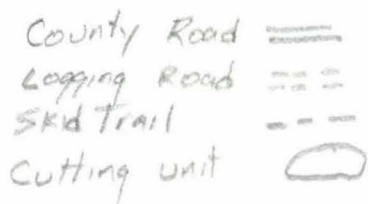 County Road
Logging Road
Skid Trail
Cutting unit